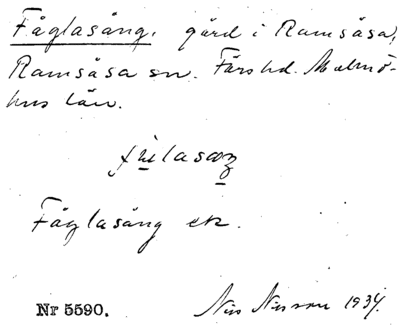 Fåglasång, gård i Ramsåsa,
Ramsåsa sn. Färs hd. Malmö-
hus län.
Fåglasång ek.
Nr 5590. Nils Nilsson 1934.